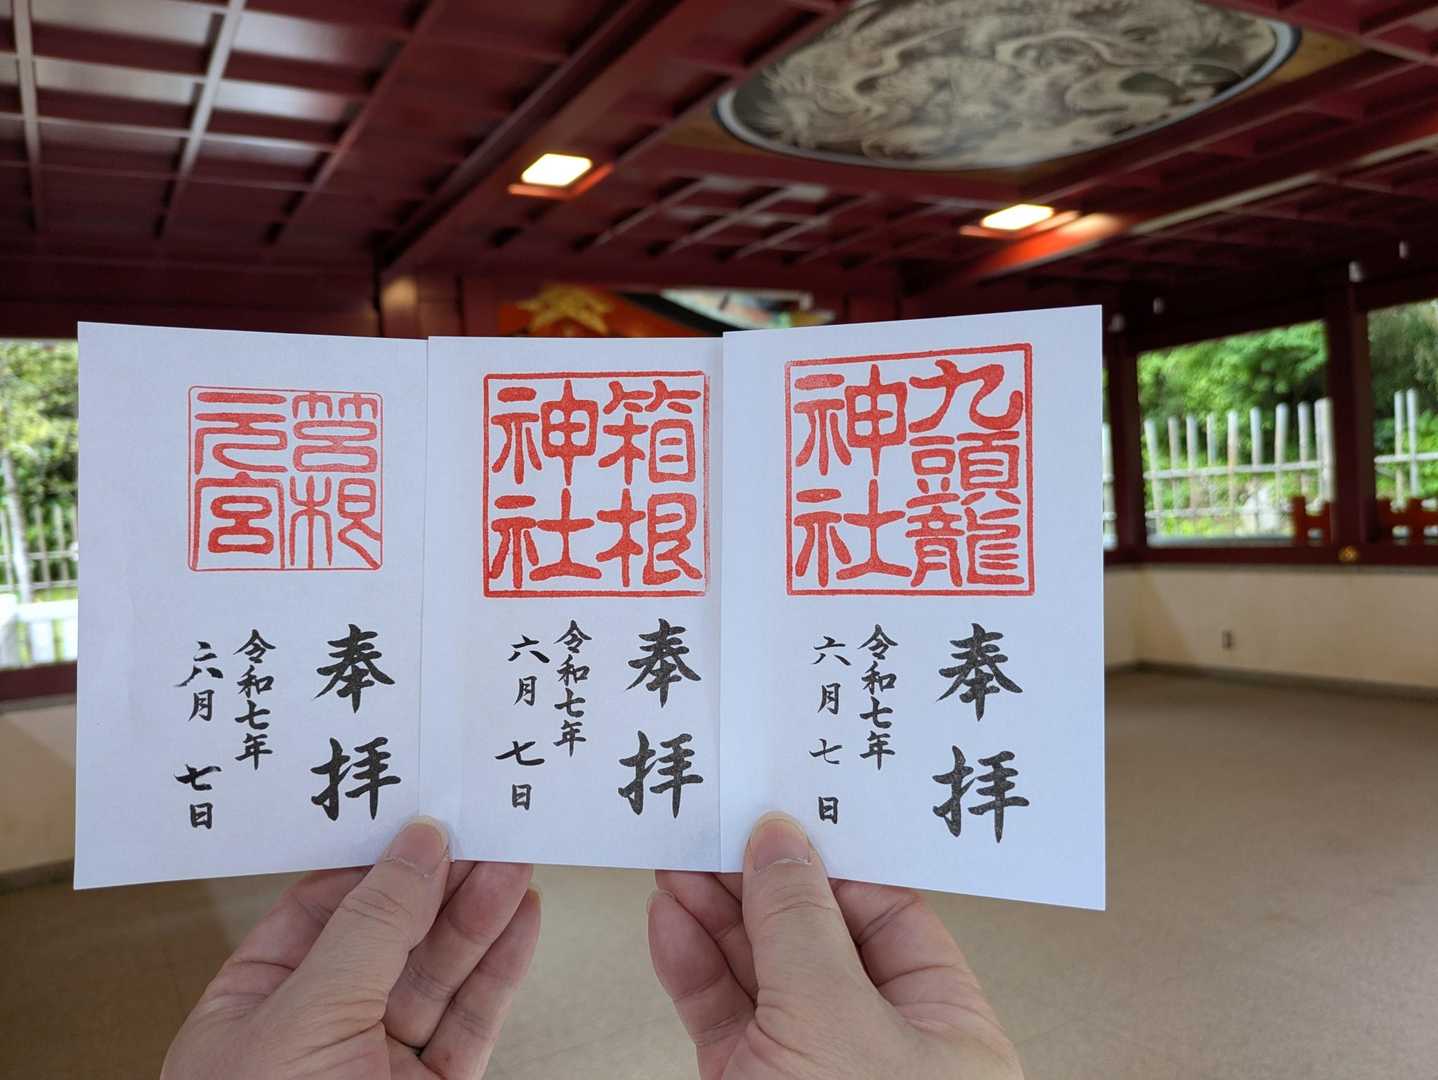 筥根
元宮
奉拝
令和七年
六月七日
箱根
神社
奉拝
令和七年
六月七日
九頭龍
神社
奉拝
令和七年
六月七日